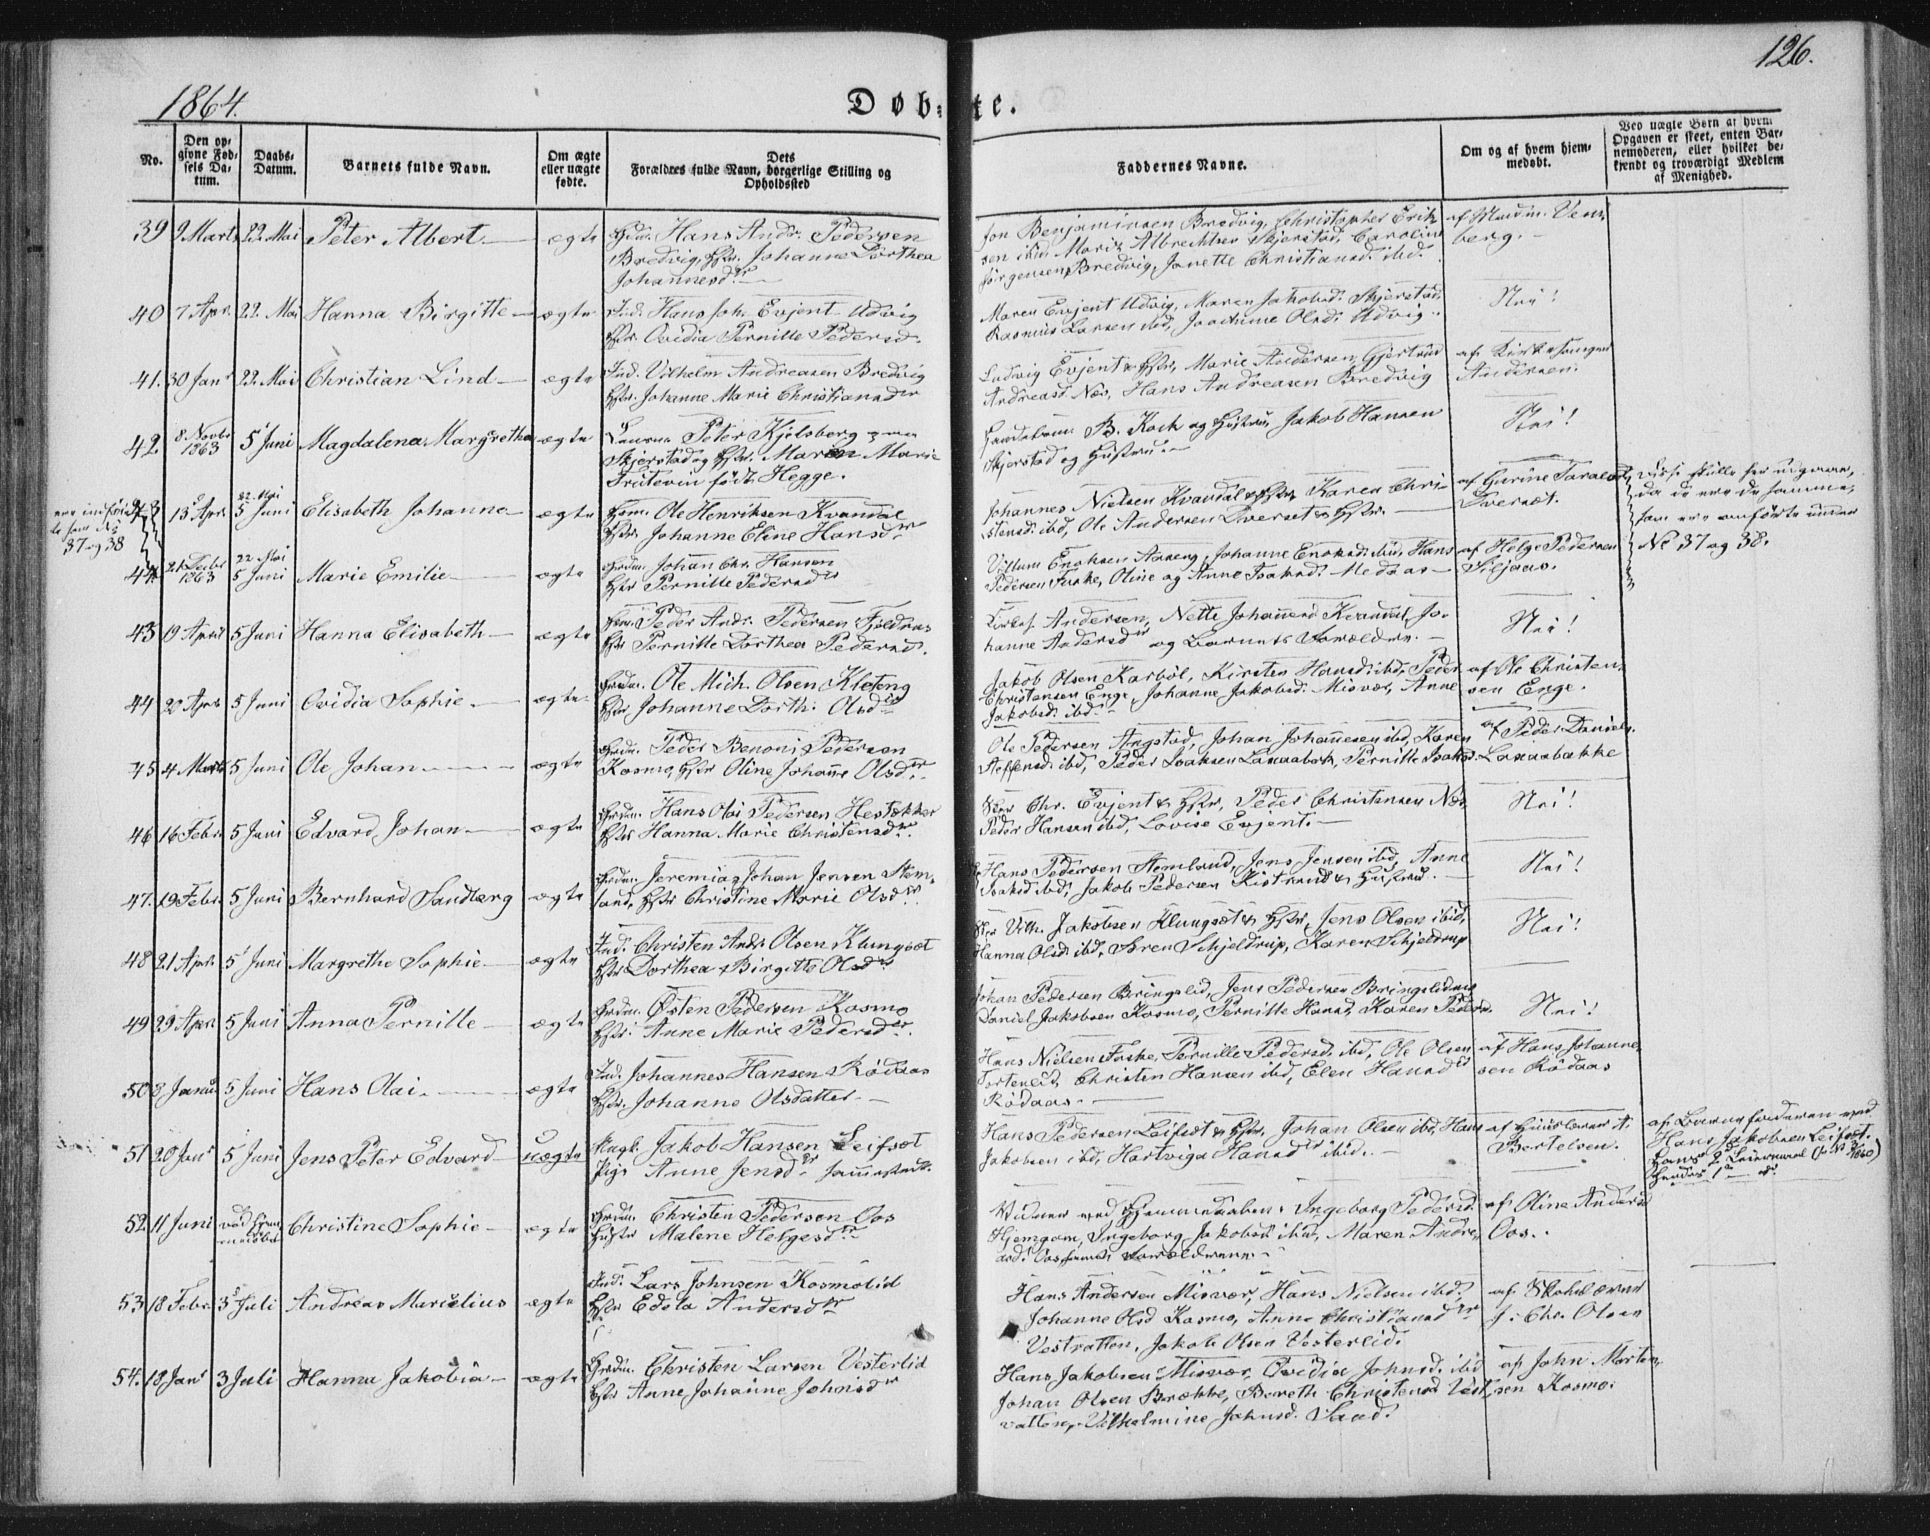 1864.
Døb=te.
126.
No.
Den opgivne Fødsels Datum.
Daabs-Datum.
Barnets fulde Navn.
Om ægte eller uægte fødte.
Dets Forældres fulde Navn, borgerlige Stilling og Opholdssted
Faddernes Navne.
Om og af hvem hjemmedøbt.
Ved uægte Børn af hvem Opgaven er skeet, enten Barnemoderen, eller hvilket bekjendt og troværdigt Medlem af Menighed.
39 9 Marts 22. Mai Peter Albert ægte Hans Andr. Pedersen
Bredvig, Hstr. Johanne Dorthea
Johannesdr
Jon Benjaminsen Bredvig, Christopher Erik-
sen ibid Marie Albrechtsen Skjerstad, Caroline
Jørgensen Bredvig, Janette Christiansd. ibid.
af Venberg.
40 7 Apr. 22. Mai Hanna Birgitte ægte Ind. Hans Joh. Evjent Udvig
Hstr. Ovidia Pernille Pedersd.
Maren Evjent Udvig, Maren Jakobsd. Skjerstad
Rasmus Larsen ibid, Joachime Olsd. Udvig.
Nei!
41. 30 Janr 22. Mai Christian Lind ægte Ind. Vilhelm Andreasen Bredvig
Hstr. Johanne Marie Christiansdr
Ludvig Evjent & Hstr, Marie Andersen, Gjertrud
Andreasd Næs, Hans Andreasen Bredvig
af Kirkesanger
Andersen.
42 8 Novbr 1863 5 Juni Magdalena Margrethe ægte Peter Kjelsberg
Skjerstad og Hstr. Maren Marie
født Hegge.
B. Koch og Hustru, Jakob Hansen
Skjerstad og Hustru.
Nei!
ere indført som No 37 og 38
43 13 Apr. 22. Mai 5 Juni Elisabeth Johanna ægte Ole Henriksen Kvandal
Hstr. Johanne Eline Hansdr
Johannes Nielsen Kvandal & Hstr Karen Chri-
stensd. ibid, Ole Andersen Tverset & Hstr.
af Gurine
Tverset.
Disse skulle her udgaae,
da de ere de samme,
som ere anførte under
No 37 og 38.
44 21 Decbr 1863 22 Mai 5 Juni Marie Emilie ægte Johan Chr. Hansen
Hstr Pernille Pedersdr
Enoksen Aaseng, Johanne Enoksd. ibid, Hans
Pedersen Fuske, Oline og Anne Isaksd. Medaas
af Helge Pedersen
43 9 April 5 Juni Hanna Elisabeth ægte Peder Andr. Pedersen
Hstr Pernille Dorthea Pedersd.
Kirkes. Andersen, Nette Johannesd Kvandal, Jo-
hanne Andersdr og Barnets Forældre.
Nei!
44 20 Apr. 5 Juni Ovidia Sophie. ægte Ole Mich. Olsen Kleteng
Hstr Johanne Dorth. Olsdr
Jakob Olsen Karbøl, Kirsten Hansd. ibid, Peder
Christensen Enge, Johanne Jakobsd. Misvær, Anne
Jakobsd. ibid.
af Ole Christen-
sen Enge.
45 4 Marts 5 Juni Ole Johan ægte Peder Benoni Pedersen
Kosmo, Hstr Oline Johanne Olsdr.
Ole Pedersen Angstad, Johan Johannesen ibid, Karen
Steffensd ibid, Peder Isaksen, Pernille Isaksd.
af Peder Daniels.
46 16 Febr 5 Juni Edvard Johan ægte Hans Olai Pedersen Hestækker
Hstr Hanna Marie Christensdr.
Chr. Evjent & Hstr, Peder Christensen Næs,
Peder Hansen ibid, Lovise Evjent.
Nei!
47. 19 Febr. 5 Juni Bernhard Sandberg ægte Jeremias Johan Jensen Stem-
land, Hstr Christine Marie Olsdr.
Hans Pedersen Stemland, Jens Jensen ibid, Anne
Isaksd ibid, Jakob Pedersen Kistrand & Hustru.
Nei!
48 21 Apr. 5 Juni Margrethe Sophie ægte Ind. Christen Andr. Olsen Klungset
Hstr Dorthea Birgitte Olsdr
Vilh. Jakobsen Klungset & Hstr, Jens Olsen ibid,
Hanna Olsd. ibid, Søren Schjeldrup, Karen Schjeldrup
Nei!
49 29 Apr. 5 Juni Anna Pernille ægte Østen Pedersen Kosmo
Hstr. Anne Marie Pedersdr.
Johan Pedersen Bringslid, Jens Pedersen Bringslid,
Daniel Jakobsen Kosmo, Pernille Hansd, Karen Pedersd.
Nei!
50 8 Januar 5 Juni Hans Olai ægte Ind. Johannes Hansen Rødaas
Hstr. Johanne Olsdatter
Hans Nielsen Fuske, Pernille Pedersd. ibid, Ole Olsen
Tortenlid, Christen Hansen ibid, Elen Hansdr
Rødaas.
af Hans Johanne-
sen Rødaas
51 20 Janr 5 Juni Jens Peter Edvard uægte Ungk. Jakob Hansen Leifset
Pige Anne Jensdr sammesteds.
Hans Pedersen Leifset & Hstr. Johan Olsen ibid, Hans
Jakobsen ibid, Hartviga Hansdr ibid.
af Huuslærer
Bertelsen.
af Barnefaderen med
Hans Jakobsen Leifset.
Hans 2det Leiermaal
Hendes 1ste
52. 11 Juni Christine Sophie ægte Christen Pedersen Oos
Hustr Malene Helgesdr
Vidner ved Hjemmedaaben: Ingeborg Pedersd.
Hjemgam, Ingeborg Jakobsd ibid, Maren Andre-
asd. Oos samt Forældrene.
af Oline Andersd
Oos.
53. 18 Febr. 3 Juli Andreas Marselius ægte Ind. Lars Johnsen Kosmolid
Hstr Edela Andersdr
Hans Andersen Misvær, Hans Nielsen ibid,
Johanne Olsd Kosmo, Anne Christiansdr
Vestvatten, Jakob Olsen Vesterlid.
af Skolelærer
J. Chr. Olsen
54. 18 Janr 3 Juli Hanna Jakobia ægte Christen Larsen Vesterlid
Hstr Anne Johanne Johnsdr
Hans Jakobsen Misvær, Ovidia Johnsd. ibid
Johan Olsen Brække, Bereth Christensd Vest-
vatten, Vilhelmine Johnsd. Sand.
af John Morten-
sen Kosmo.